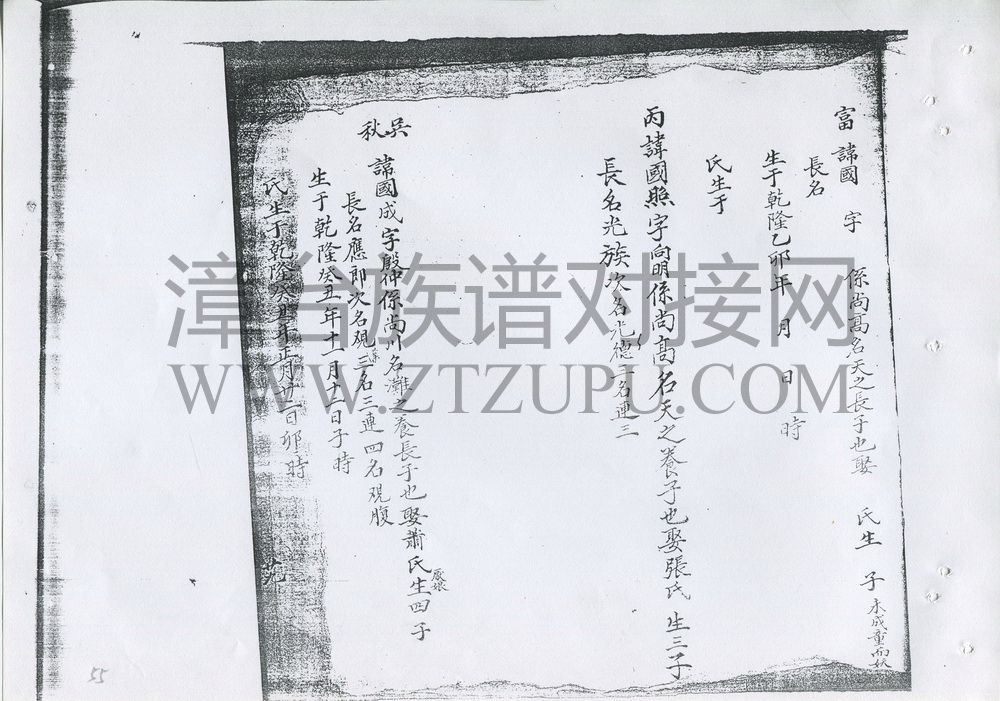 富 諱國 字 係尚高名天之長子也娶 氏生 子 未成童而妖
長名
生于乾隆乙卯年 月 日 時
氏生于
丙 諱國照字向明係尚高名天之養子也娶張氏生三子
長名光族次名光德三名連三
吳秋 諱國成字殷仲係尚川名灘之養長子也娶蕭氏生四子
長名應即次名覌三名三連四名覌腹
生于乾隆癸丑年十一月十二日子時
氏生于乾隆癸 年正月廿二日卯時
漳台族谱对接网
WWW.ZTZUPU.COM
55